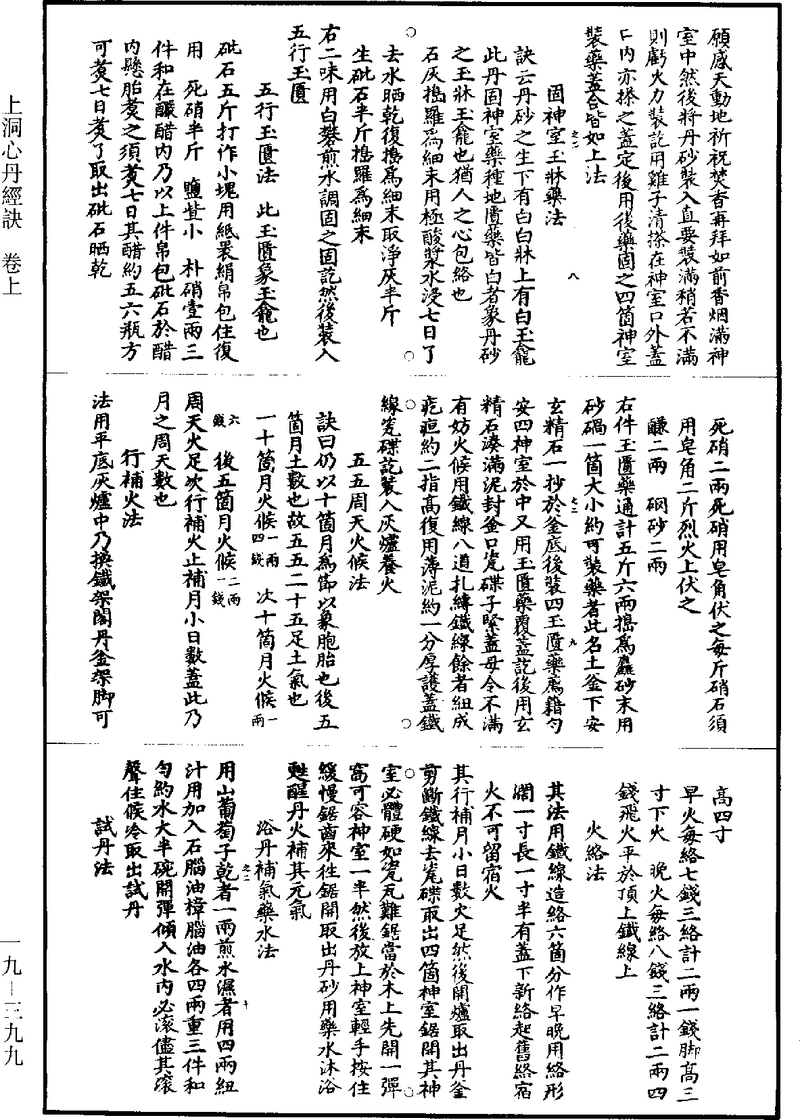 上洞心丹經訣　卷上
一九—三九九
願感天動地祈祝焚香再拜如前香烟滿神
室中然後將丹砂裝入直要裝滿稍若不滿
則虧火力裝訖用雞子清搽在神室口外蓋
口内亦搽之蓋定後用後藥固之四箇神室
裝藥蓋合皆如上法
固神室玉牀藥法
訣云丹砂之生下有白牀上有白玉龕
此丹固神室藥種地匱藥皆白者象丹砂
之玉牀玉龕也猶人之心包絡也
石灰搗羅爲細末用極酸漿水浸七日了
去水晒乾復搗爲細末取淨灰半斤
生砒石半斤搗羅爲細末
右二味用白礬煎水調固之固訖然後裝入
五行玉匱
五行玉匱法　此玉匱象玉龕也
砒石五斤打作小塊用紙裹絹帛包住復
用　死硝半斤　鹽壹小　朴硝壹兩三
件和在釅醋内乃以上件帛包砒石於醋
内懸胎煑之須煑七日其醋約五六瓶方
可煑七日煑了取出砒石晒乾
死硝二兩死硝用皂角伏之每斤硝石須
用皂角二斤烈火上伏之
鹻二兩　硇砂二兩
右件玉匱藥通計五斤六兩搗爲麤砂末用
砂鍋一箇大小約可裝藥者此名土釜下安
玄精石一抄於釜底後裝四玉匱藥薦藉勻
安四神室於中又用玉匱藥覆蓋訖後用玄
精石湊滿泥封釜口瓷碟子緊蓋毋令不滿
有妨火候用鐵線八道扎縛鐵線餘者紐成
疙疸約二指高復用薄泥約一分厚護蓋鐵
線瓷碟訖裝入灰爐養火
五五周天火候法
訣曰仍以十箇月爲節以象胞胎也後五
箇月土數也故五五二十五足土氣也
一十箇月火候一兩四錢　次十箇月火候一兩
六錢　後五箇月火候二兩一錢
周天火足次行補火止補月小日數蓋此乃
月之周天數也
行補火法
法用平底灰爐中乃換鐵架閣丹釜架脚可
高四寸
早火每絡七錢三絡計二兩一錢脚高三
寸下火　晚火每絡八錢三絡計二兩四
錢飛火平於頂上鐵線上
火絡法
其法用鐵線造絡六箇分作早晚用絡形
濶一寸長一寸半有蓋下新絡起舊絡宿
火不可留宿火
其行補月小日數火足然後開爐取出丹釜
剪斷鐵線去瓷碟取出四箇神室鋸開其神
室必體硬如瓷瓦難鋸當於木上先開一彈
窩可容神室一半然後放上神室輕手按住
緩慢鋸齒來往鋸開取出丹砂用藥水沐浴
甦醒丹火補其元氣
浴丹補氣藥水法
用山葡萄子乾者一兩煎水濕者用四兩紐
汁用加入石腦油樟腦油各四兩重三件和
勻約水大半碗開彈傾入水内必滚儘其滚
聲住候冷取出試丹
試丹法